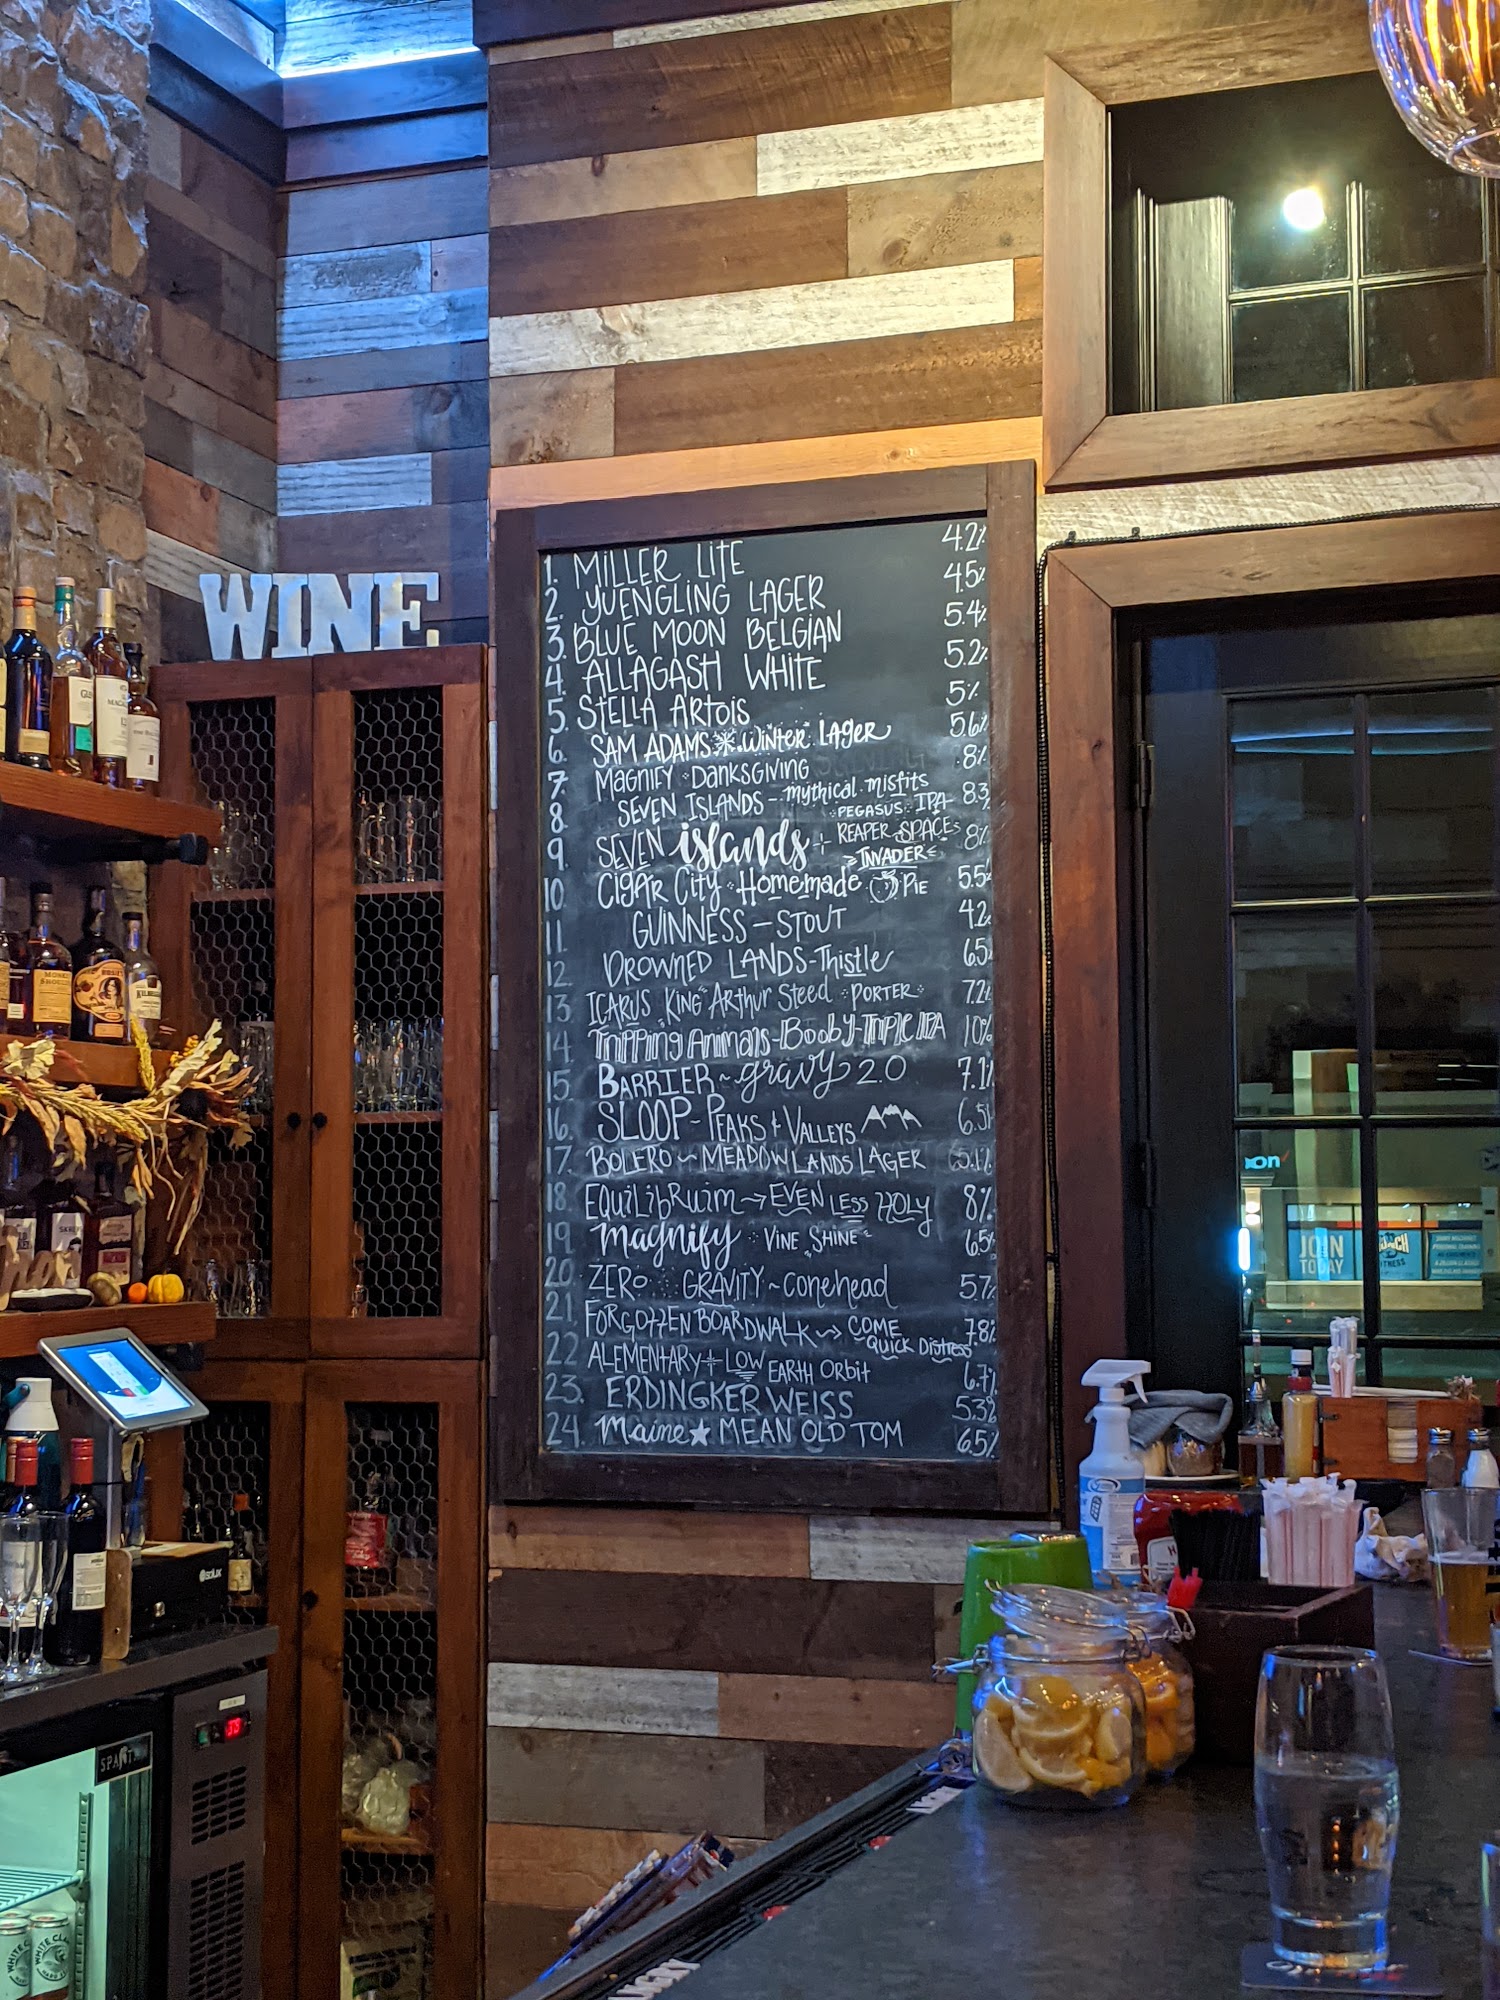 WINE
1. MILLER LITE 4.2%
2. YUENGLING LAGER 4.5%
3. BLUE MOON BELGIAN 5.4%
4. ALLAGASH WHITE 5.2%
5. STELLA ARTOIS 5%
6. SAM ADAMS WINTER LAGER 5.6%
7. MAGNIFY DANKSGIVING 8%
8. SEVEN ISLANDS - mythical misfits 8.3%
PEGASUS IPA
9. SEVEN islands + REAPER SPACE 8%
INVADER
10. CIGAR CITY Homemade PIE 5.5%
11. GUINNESS - STOUT 4.2%
12. DROWNED LANDS - Thistle 6.5%
13. ICARUS "KING" Arthur Steed PORTER 7.2%
14. Tripping Animals - Booby - Triple IPA 10%
15. BARRIER ~ gravy 2.0 7.1%
16. SLOOP - PEAKS + VALLEYS 6.5%
17. BOLERO ~ MEADOWLANDS LAGER 5.1%
18. EQUILIBRUIM → EVEN LESS HOLY 8%
19. Magnify VINE SHINE 6.5%
20. ZERO GRAVITY ~ conehead 5.7%
21. FORGOTTEN BOARDWALK → COME 7.8%
QUICK DISTRESS
22. ALEMENTARY + LOW EARTH ORBIT 6.7%
23. ERDINGKER WEISS 5.3%
24. Maine ★ MEAN OLD TOM 6.5%
JOIN
TODAY
SPARTA
WHITE CLAW